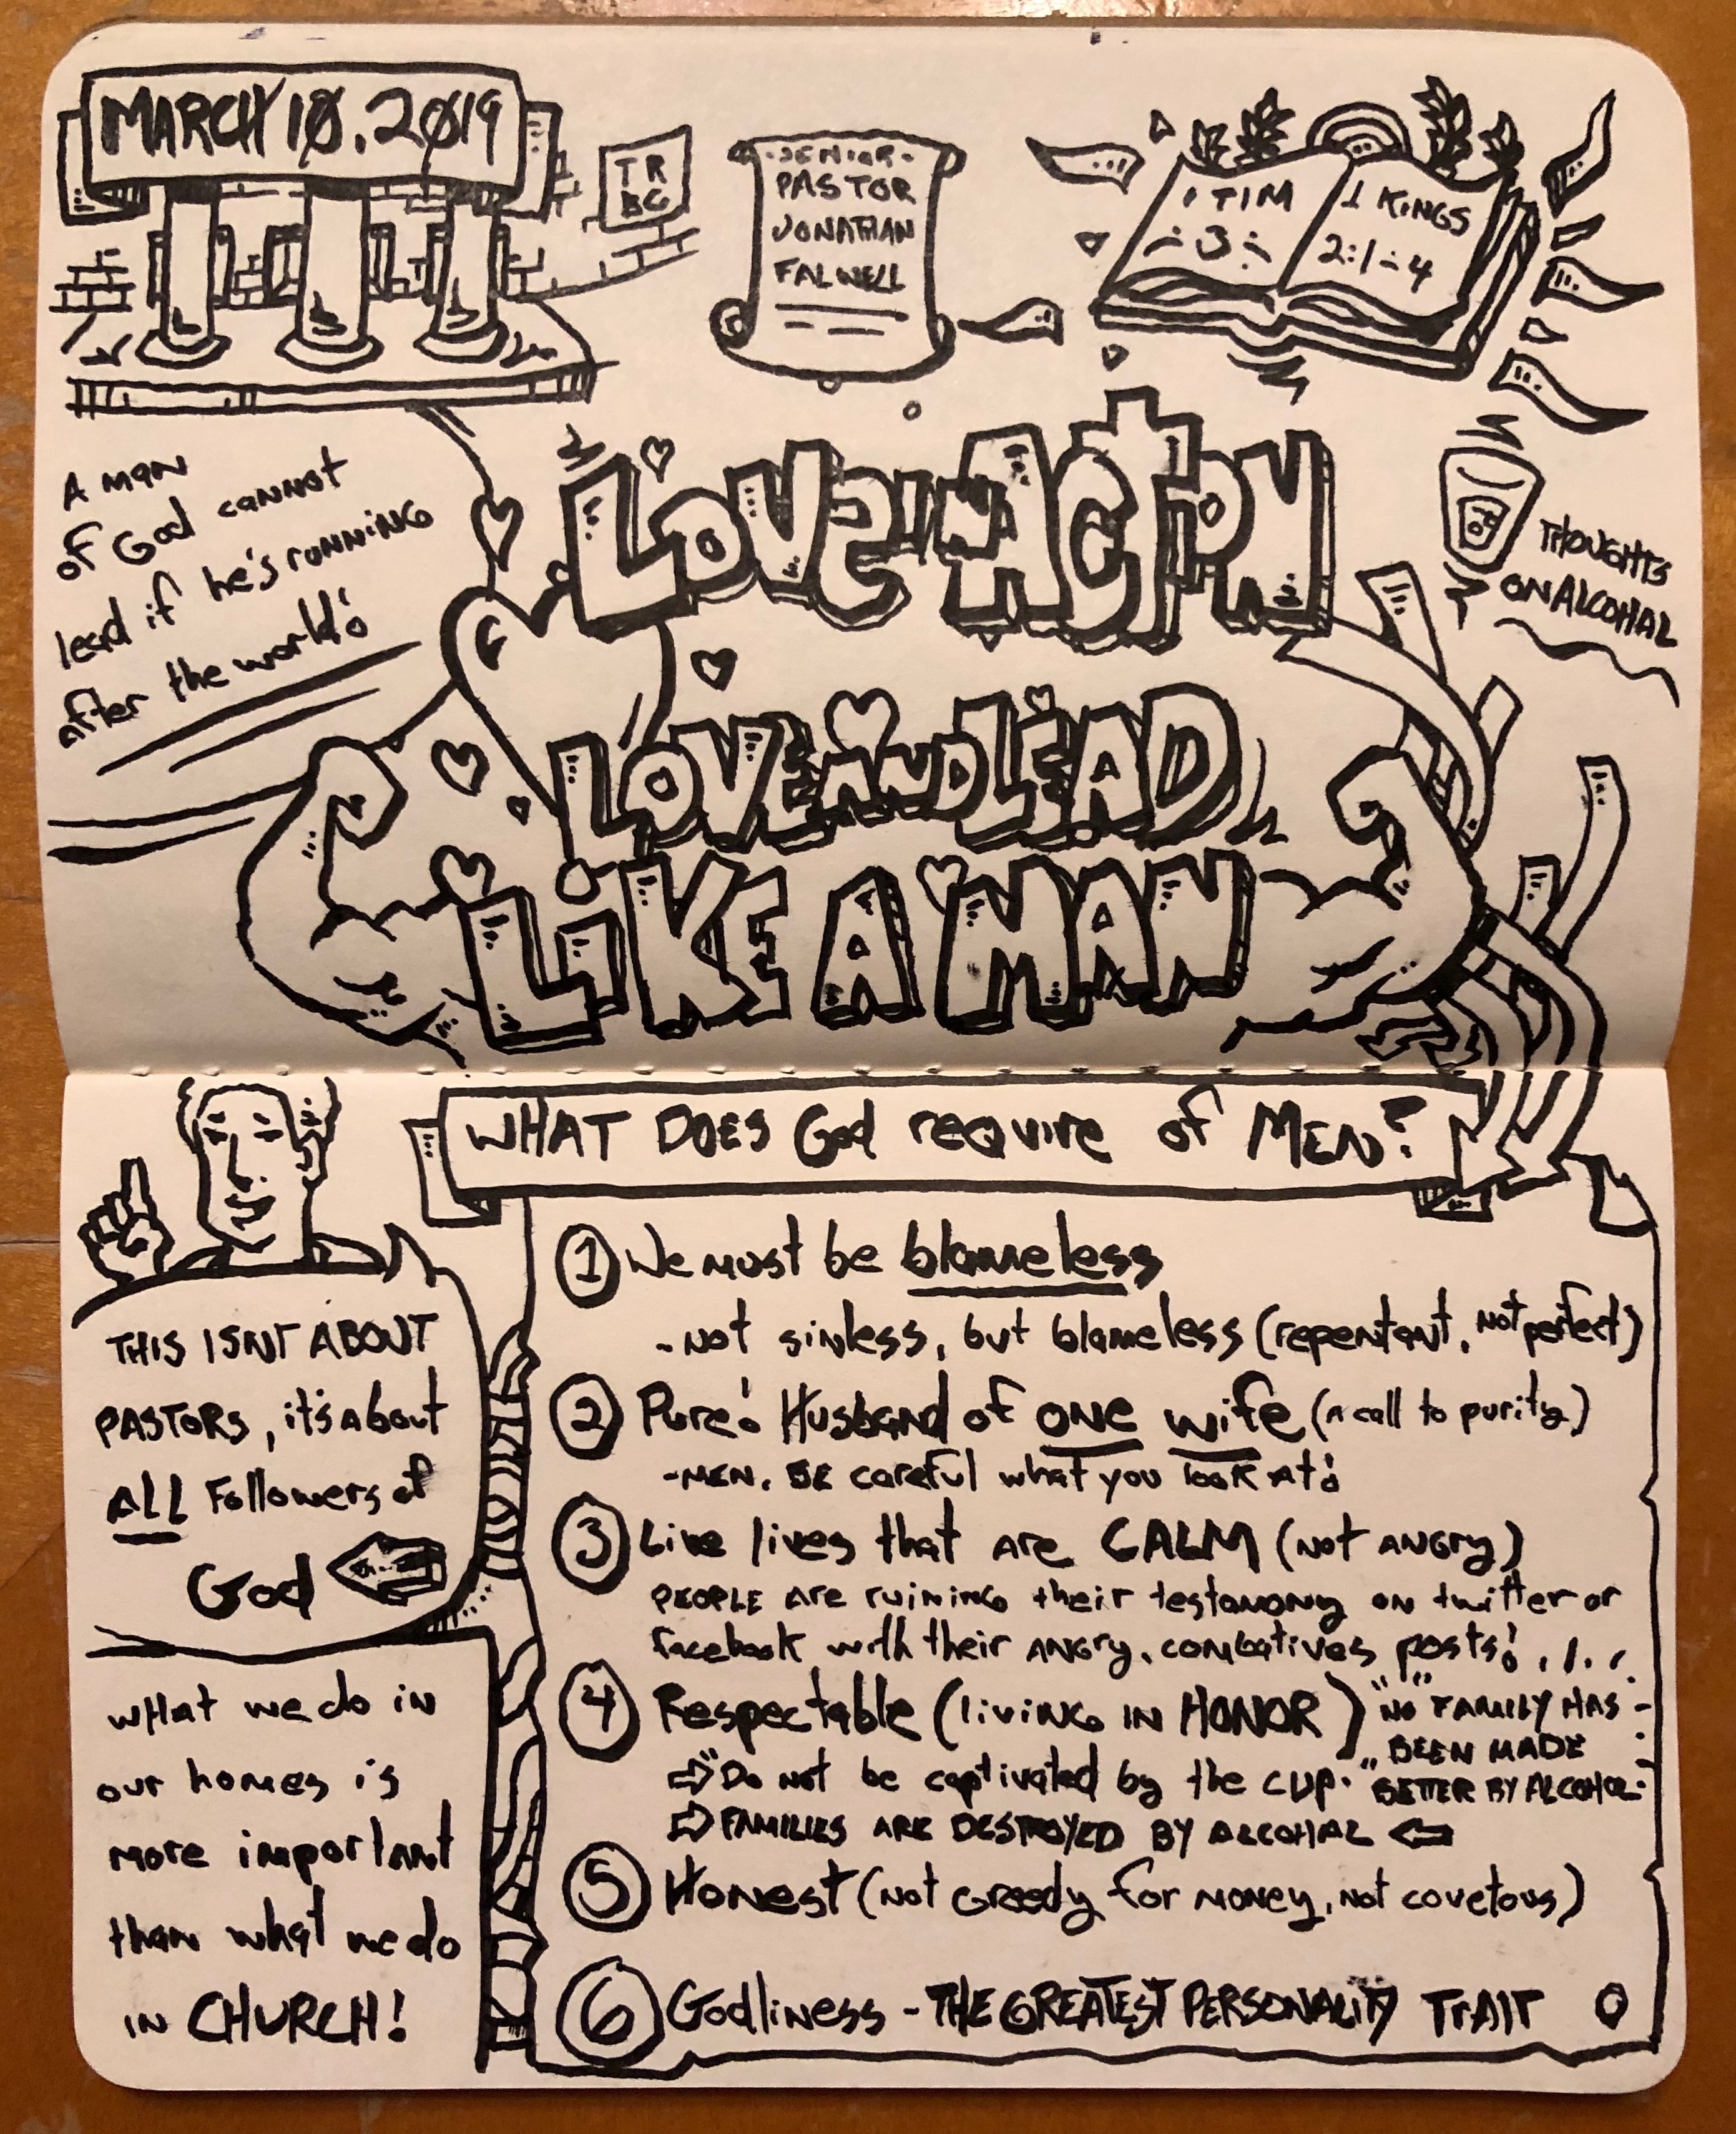 MARCH 10.2019
TR
BC
SENIOR
PASTOR
JONATHAN
FALWELL
1 TIM
3
1 KINGS
2:1-4
A man
of God cannot
lead if he's running
after the world!
LOVE IN ACTION
THOUGHTS
ON ALCOHAL
LOVE AND LEAD
LIKE A MAN
WHAT DOES God require of MEN?
THIS ISNT ABOUT
PASTORS, it's about
ALL Followers of
God
what we do in
our homes is
more important
than what we do
in CHURCH!
1 We must be blameless
- not sinless, but blameless (repentant, not perfect)
2 Pure! Husband of one wife (a call to purity)
- MEN. BE careful what you look at!
3 Live lives that are CALM (not angry)
PEOPLE are ruining their testomony on twitter or
facebook with their angry, combatives posts!
4 Respectable (living in HONOR)
"NO" FAMILY HAS
BEEN MADE
BETTER BY ALCOHOL
⇨ "Do not be captivated by the cup."
⇨ FAMILIES ARE DESTROYED BY ALCOHAL ⇦
5 Honest (not Greedy for money, not covetous)
6 Godliness - THE GREATEST PERSONALITY TRAIT